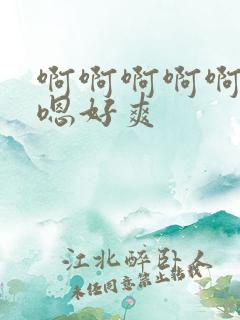 啊啊啊啊啊
嗯好爽
江北醉卧人
未经同意禁止转载